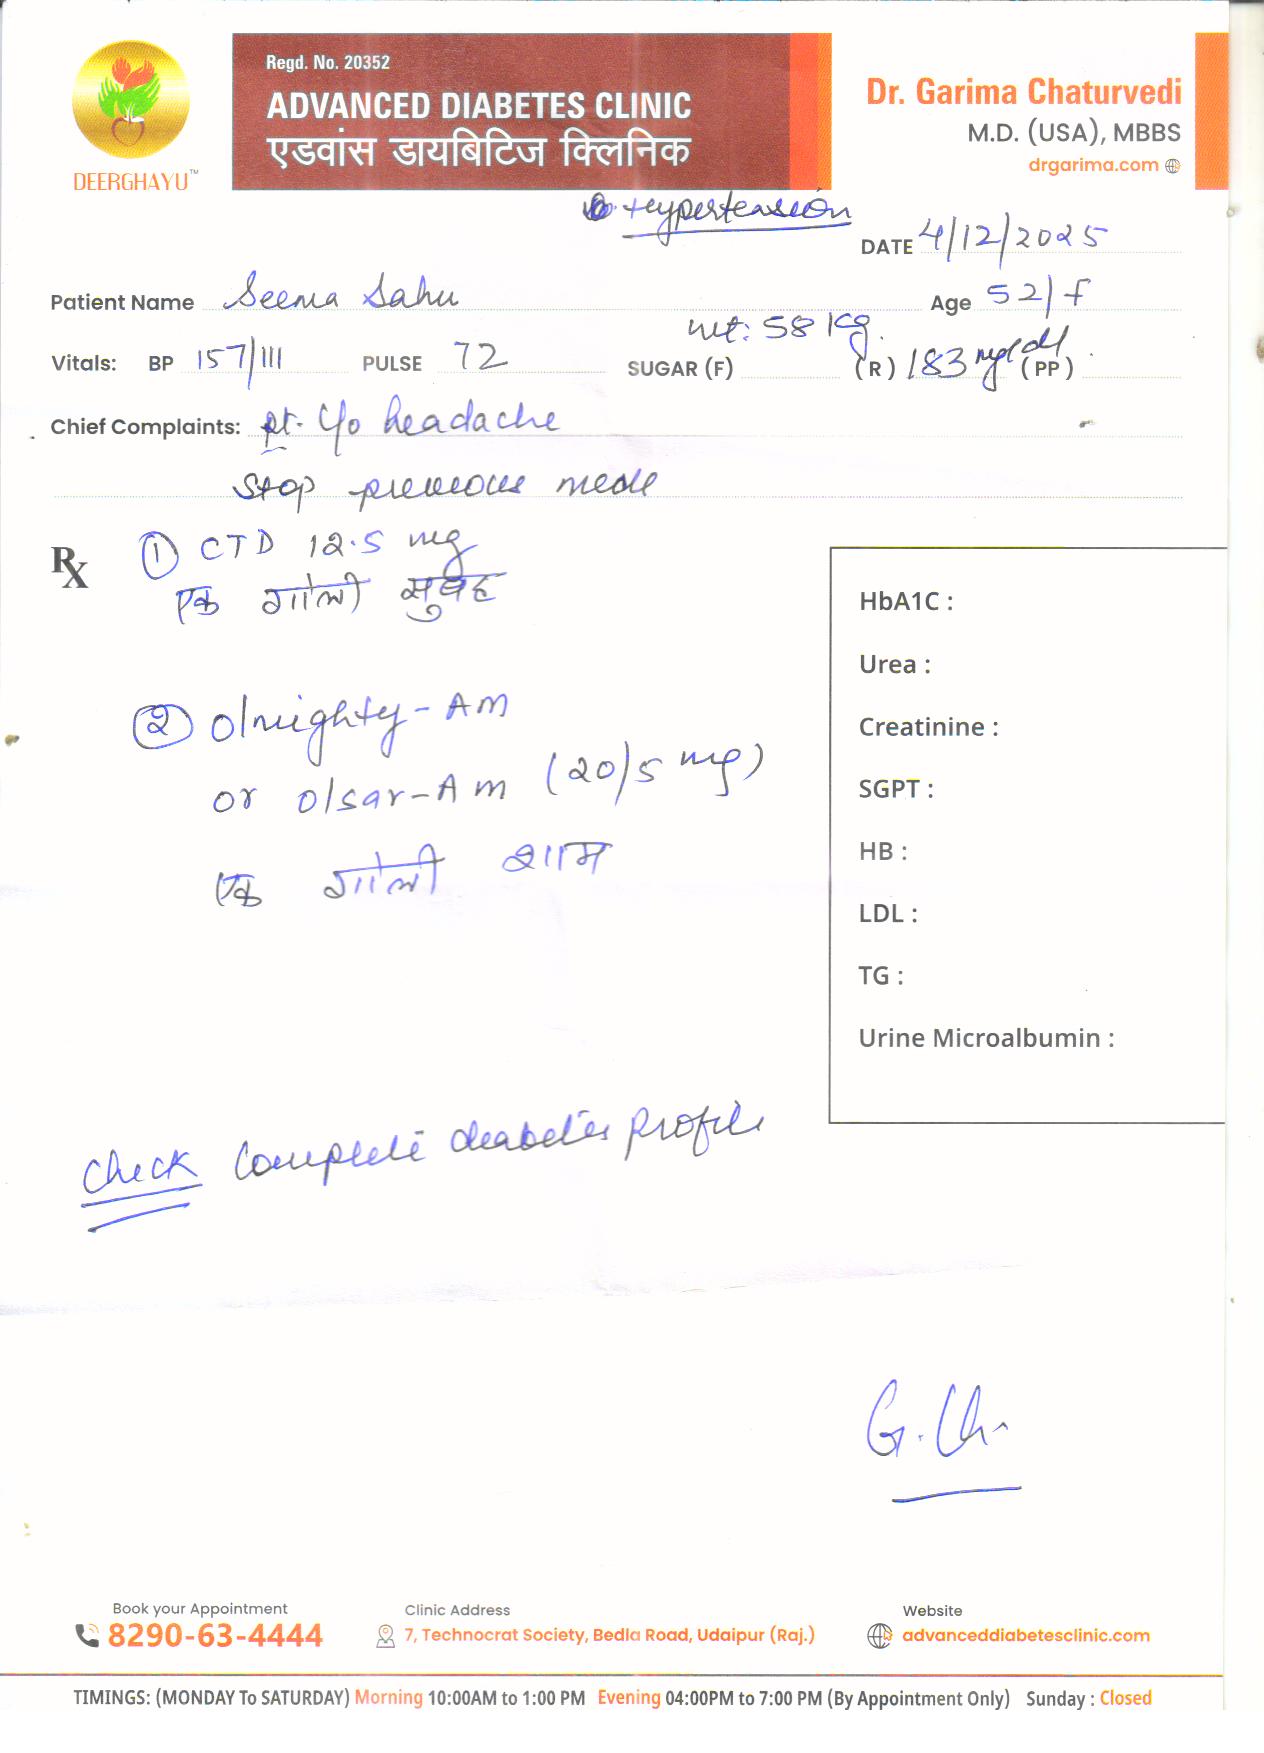 Regd. No. 20352
ADVANCED DIABETES CLINIC
एडवांस डायबिटिज क्लिनिक
DEERGHAYU™
Dr. Garima Chaturvedi
M.D. (USA), MBBS
drgarima.com
Hypertension
DATE 4/12/2025
Patient Name Seema Sahu Age 52/F
wt: 58 kg
Vitals: BP 157/111 PULSE 72 SUGAR (F) (R) 183 mg/dl (PP)
Chief Complaints: pt. c/o headache
Stop previous meds
Rx
① CTD 12.5 mg
एक गोली सुबह
② Olmighty-AM
or Olsar-AM (20/5 mg)
एक गोली शाम
HbA1C :
Urea :
Creatinine :
SGPT :
HB :
LDL :
TG :
Urine Microalbumin :
Check complete diabetes profile
G. Ch.
Book your Appointment
8290-63-4444
Clinic Address
7, Technocrat Society, Bedla Road, Udaipur (Raj.)
Website
advanceddiabetesclinic.com
TIMINGS: (MONDAY To SATURDAY) Morning 10:00AM to 1:00 PM Evening 04:00PM to 7:00 PM (By Appointment Only) Sunday : Closed